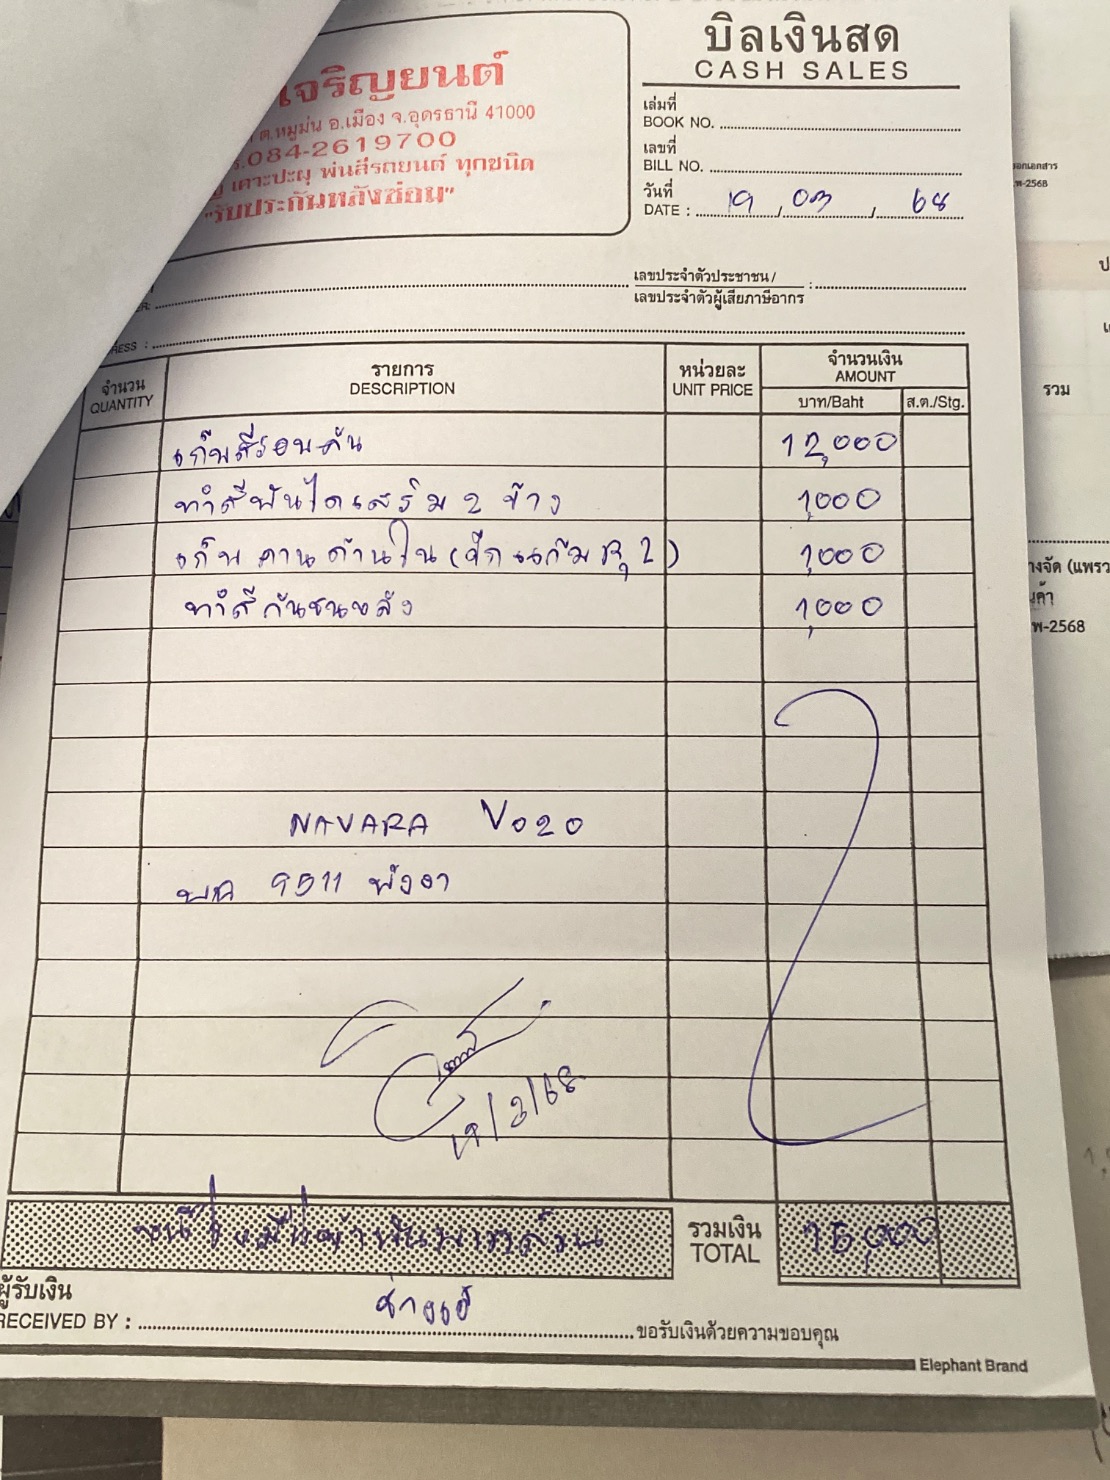 บิลเงินสด
CASH SALES
เจริญยนต์
ต.หมูม่น อ.เมือง จ.อุดรธานี 41000
ร.084-2619700
เคาะปะผุ พ่นสีรถยนต์ ทุกชนิด
"รับประกันหลังซ่อม"
เล่มที่
BOOK NO.
เลขที่
BILL NO.
วันที่
DATE : 19 / 03 / 68
เลขประจำตัวประชาชน /
เลขประจำตัวผู้เสียภาษีอากร :
RESS :
จำนวน QUANTITY รายการ DESCRIPTION หน่วยละ UNIT PRICE จำนวนเงิน AMOUNT
บาท/Baht ส.ต./Stg.
เก็บสีรอบคัน 12,000
ทำสีบันไดเสริม 2 ข้าง 1,000
เก็บคานด้านใน 1,000
ทำสีกันชนหลัง 1,000
NAVARA V020
9511 พังงา
19/3/68
รวมเงิน
TOTAL 15,000
ผู้รับเงิน
RECEIVED BY : ขอรับเงินด้วยความขอบคุณ
Elephant Brand
อกเอกสาร
พ-2568
รวม
างจัด (แพรว
นค้า
พ-2568